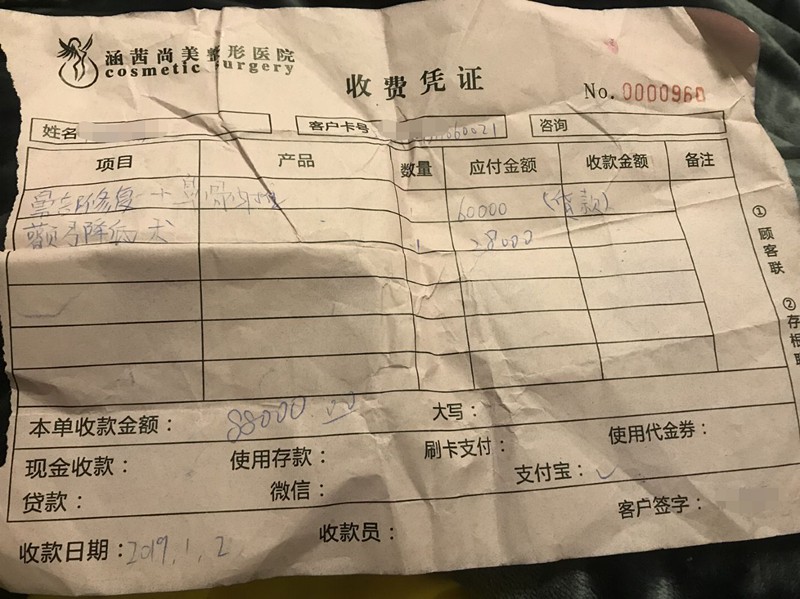 涵茜尚美整形医院
cosmetic surgery
收费凭证
No. 0000960
姓名 客户卡号 060021 咨询
项目 产品 数量 应付金额 收款金额 备注
修复 + 鼻骨 1 60000 (贷款)
颧弓降低 1 28000
① 顾客联
② 存根联
本单收款金额： 88000.00 大写：
现金收款： 使用存款： 刷卡支付： 使用代金券：
贷款： 微信： 支付宝：
收款日期：2019.1.2 收款员： 客户签字：